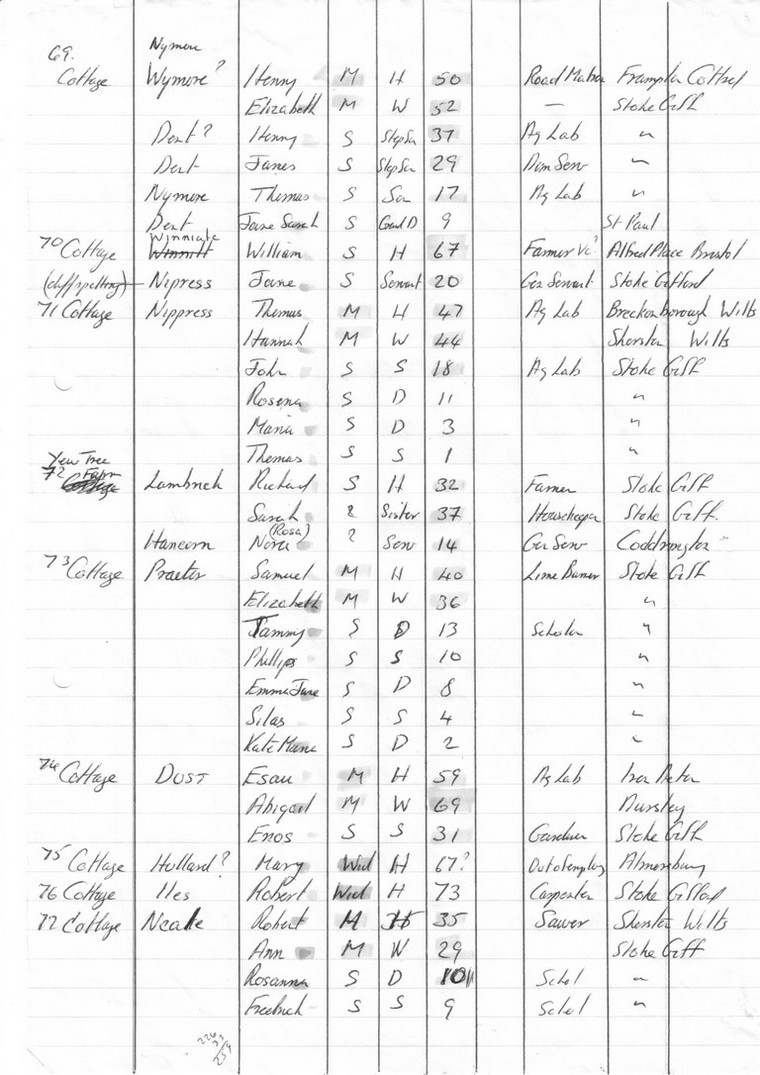 69. Nymore
Cottage Wymore? Henny M H 50 Road Frampton Cottrel
Elizabeth M W 52 — Stoke Giff
Dent? Henny S Step Son 37 Ag Lab "
Dent James S Step Son 29 Dom Serv "
Nymore Thomas S Son 17 Ag Lab "
Dent Jane Sarah S Grand D 9 St Paul
Winniate
70 Cottage Winnitt William S H 67 Farmer Alfred Place Bristol
(diff spelling) Nipress Jane S Servant 20 Gen Servant Stoke Gifford
71 Cottage Nippress Thomas M H 47 Ag Lab Breckonborough Wilts
Hannah M W 44 Sherston Wilts
John S S 18 Ag Lab Stoke Giff
Rosena S D 11 "
Maria S D 3 "
Thomas S S 1 "
Yew Tree
72 Farm Cottage Lambrick Richard S H 32 Farmer Stoke Giff
Sarah ? Sister 37 Housekeeper Stoke Giff.
(Rosa)
Hancorn Nora ? Serv 14 Gen Serv Coddrington
73 Cottage Praeter Samuel M H 40 Lime Burner Stoke Giff
Elizabeth M W 36 "
Tammy S D 13 Scholar "
Phillips S S 10 "
Emma Jane S D 8 "
Silas S S 4 "
Kate Maria S D 2 "
74 Cottage Dust Esau M H 59 Ag Lab Iron Acton
Abigail M W 69 Dursley
Enos S S 31 Gardner Stoke Giff
75 Cottage Holland? Mary Wid H 67? Almondsbury
76 Cottage Iles Robert Wid H 73 Carpenter Stoke Gifford
77 Cottage Neale Robert M H 35 Sawer Sherston Wilts
Ann M W 29 Stoke Giff
Rosanna S D 10 Schol "
Fredrick S S 9 Schol "